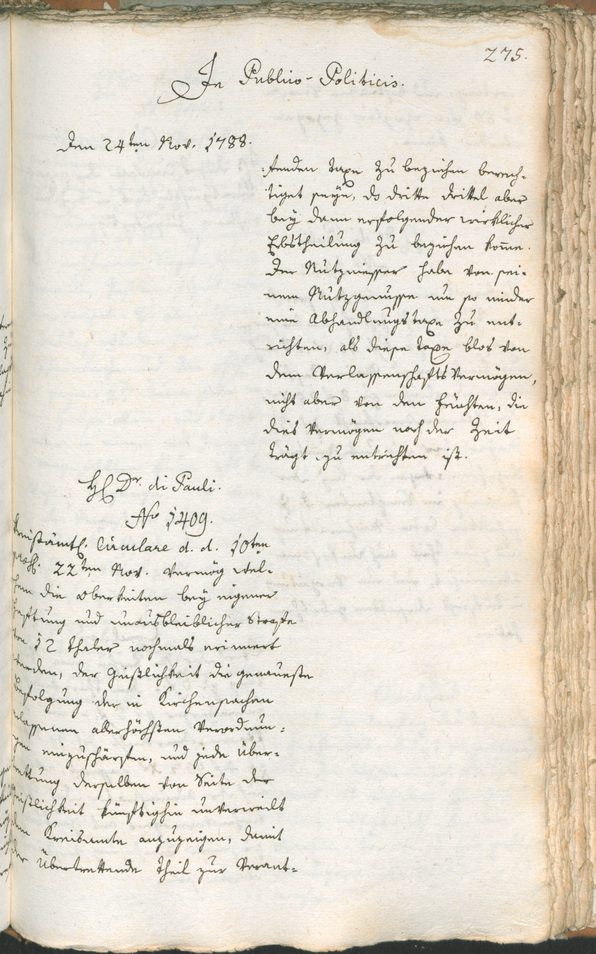 275.
In Publico-Politicis.
den 24ten Nov. 1788.
:tenden Taxe zu beziehen berech-
tiget seye, das dritte drittel aber
bey dann erfolgender wirklicher
Erbstheilung zu beziehen kom̄e.
Der Nutzniesser habe von sei-
nem Nutzgenusse um so minder
eine Abhandlungstaxe zu ent-
richten, als diese Taxe blos von
dem Verlassenschafts Vermögen,
nicht aber von den Früchten, die
dies Vermögen nach der Zeit
trägt, zu entrichten ist.
H. Dr. di Pauli.
No 1409.
Kreisämtl. Circulare d. d. 10ten
22ten Nov. vermög wel-
chem die Obrkeiten bey eigener
Haftung und unausbleiblicher Strafe
12 Thaler nochmals erinnert
werden, der Geistlichkeit die genaueste
Befolgung der in Kirchensachen
erlassenen allerhöchsten Verordnun-
gen einzuschärfen, und jede Über-
trettung derselben von Seite der
Geistlichkeit künftighin unverweilt
dem Kreisamte anzuzeigen, damit
der Übertrettende Theil zur Verant-